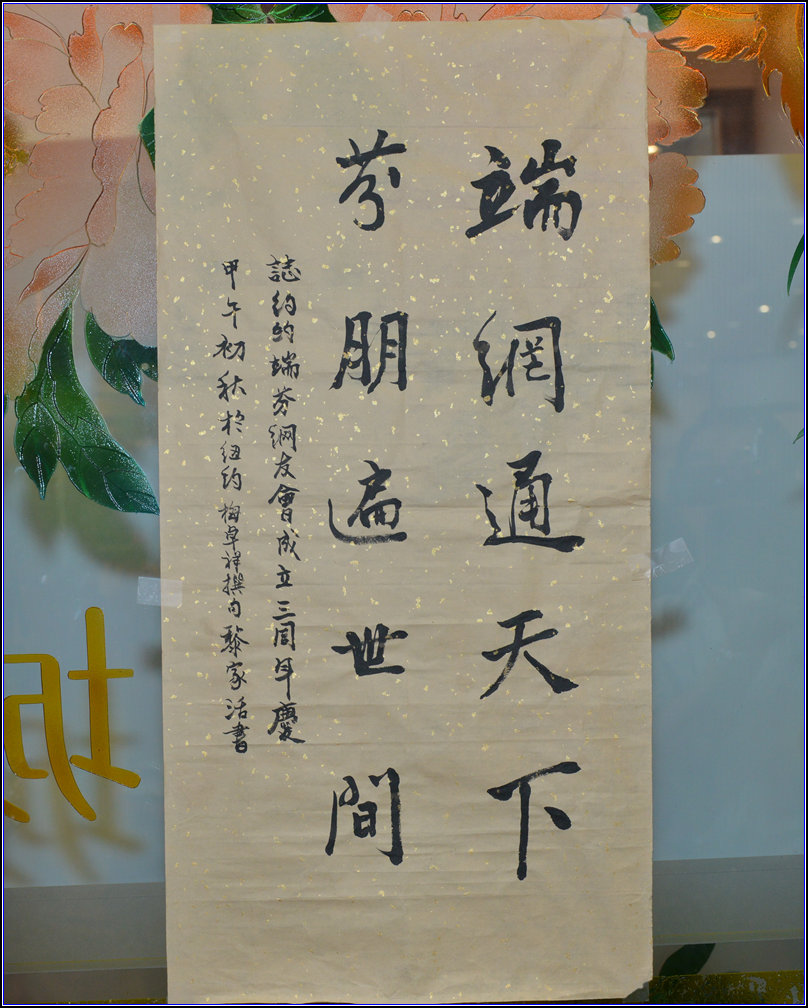 端網通天下
芬朋遍世間
誌約約端芬網友會成立三周年慶
甲午初秋於纽約 梅卓祥撰句 黎家活書
坊